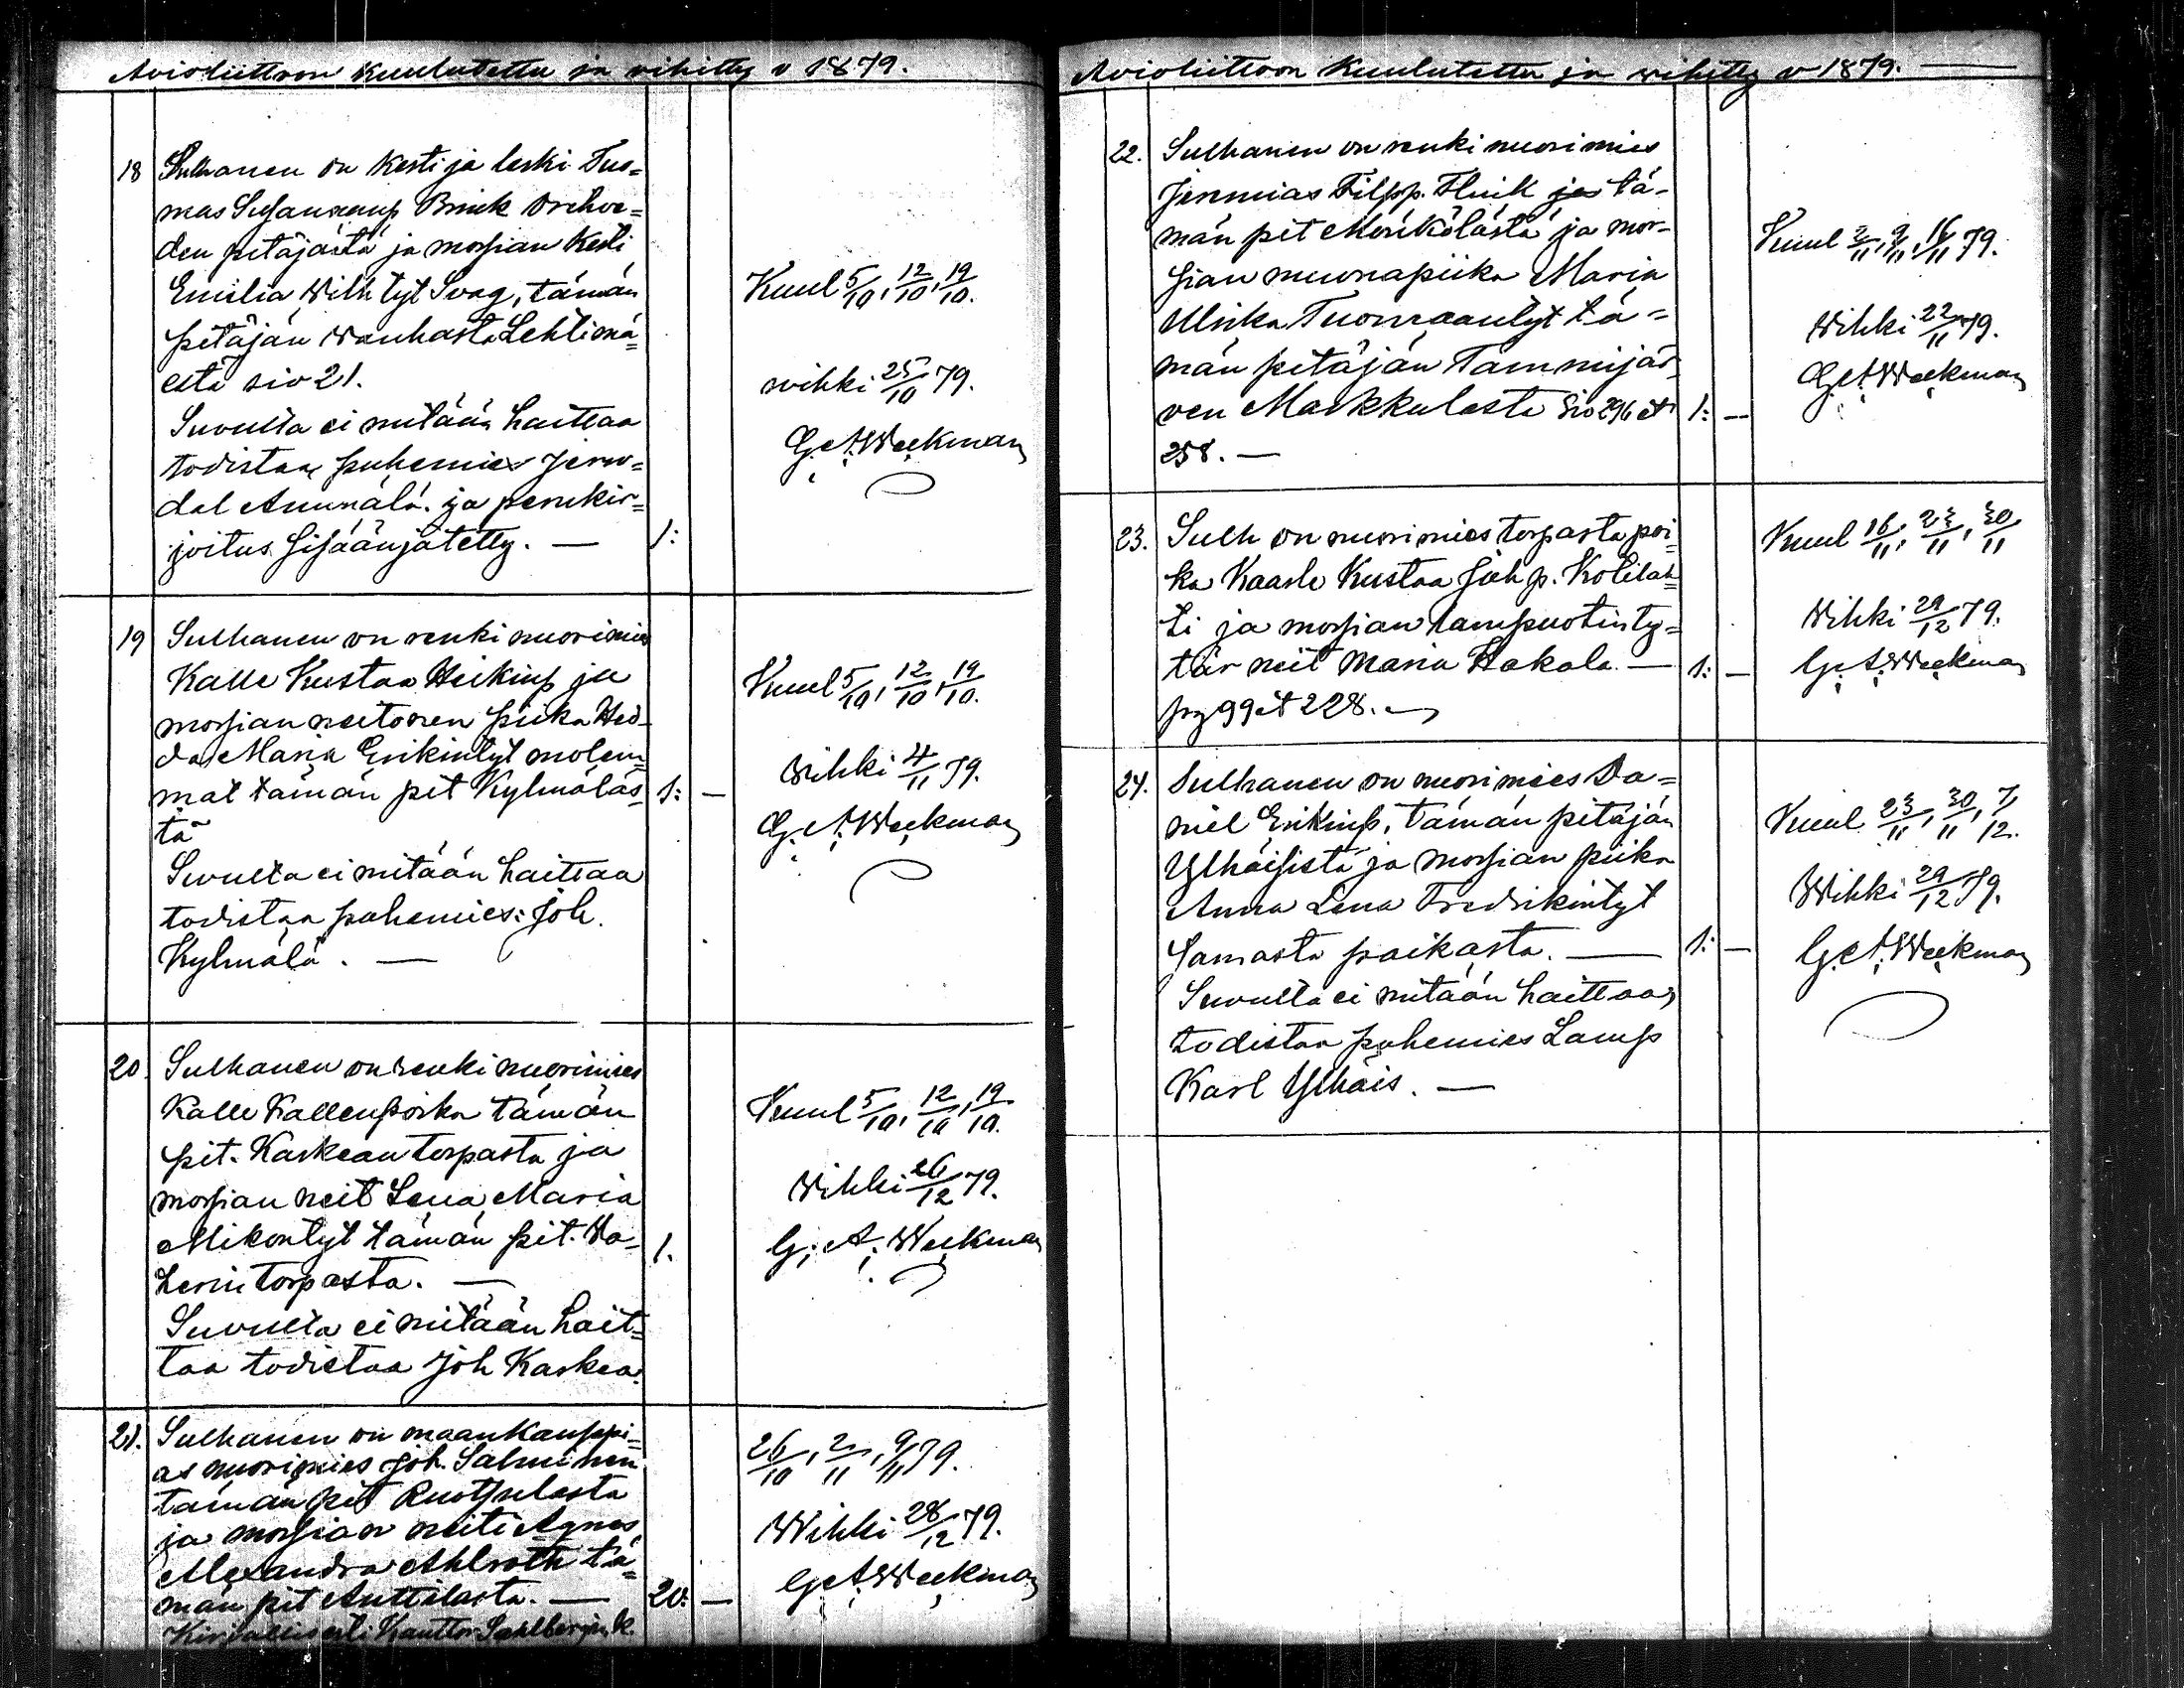 Avioliittoon Kuulutettu ja vihitty v 1879.
18 Sulhanen on Kesti ja leski Tuo=
mas Brink Orihve=
den pitäjästä ja morsian Kesti
Emilia Wilh tyt Svag, tämän
pitäjän Wanhasta Lehtimä=
estä siv 21.
Suvulta ei mitään haittaa
todistaa puhemies
Annnälä. ja perukir=
joitus sisäänjätetty. — 1:
Kuul 5/10, 12/10, 19/10.
vihki 25/10 79.
G. A. Weekman
19 Sulhanen on renki nuorimies
Kalle Kustaa Heikinp ja
morsian neitonen piika Hed=
da Maria Erikintyt molem=
mat tämän pit Kylmäläs= 1: —
tä
Suvulta ei mitään haittaa
todistaa puhemies: Joh.
Kylmälä. —
Kuul 5/10, 12/10, 19/10.
Vihki 4/11 79.
G. A. Weekman
20. Sulhanen on renki nuorimies
Kalle Kallenpoika tämän
pit. Kaskean torpasta ja
morsian neit Lena Maria
Mikontyt tämän pit. 1.
torpasta. —
Suvulta ei mitään hait=
taa todistaa Joh Kaskea.
Kuul 5/10, 12/10, 19/10.
Vihki 26/12 79.
G. A. Weekman
21. Sulhanen on maankauppi=
as nuorimies Joh. Salminen
tämän pit Ruotsulasta
ja morsian neiti Agnes
Alexandra Ahlroth tä=
män pit Anttilasta. — 20: —
Kirjallisesti Kanttor Sahlbergin k.
26/10, 2/11, 9/11 79.
Wihki 28/12 79.
G. A. Weekman
Avioliittoon Kuulutettu ja wihitty v 1879. —
22. Sulhanen on renki nuorimies
Jeremias Filpp. tä=
män pit ja mor=
sian nuoripiika Maria
Ulrika Tuomaantyt tä=
män pitäjän Tammijär=
ven Markkulasta Siv 296 et 1: —
258. —
Kuul 2/11, 9/11, 16/11 79.
Wihki 22/11 79.
G. A. Weekman
23. Sulh on nuorimies torpasta poi=
ka Kaarle Kustaa Joh p. Kolilah=
ti ja morsian lampuotinty=
tär neit Maria Hakala. — 1: —
pag 99 et 228. —
Kuul 16/11, 23/11, 30/11
Vihki 29/12 79.
G. A. Weekman
24. Sulhanen on nuorimies Da=
niel Erikinp, tämän pitäjän
Ylhäisistä ja morsian piika
Anna Lena Fredrikintyt
samasta paikasta. — 1: —
Suvulta ei mitään haittaa,
todistaa puhemies Lamp
Karl Ylhäis. —
Kuul 23/11, 30/11, 7/12.
Wihki 29/12 79.
G. A. Weekman